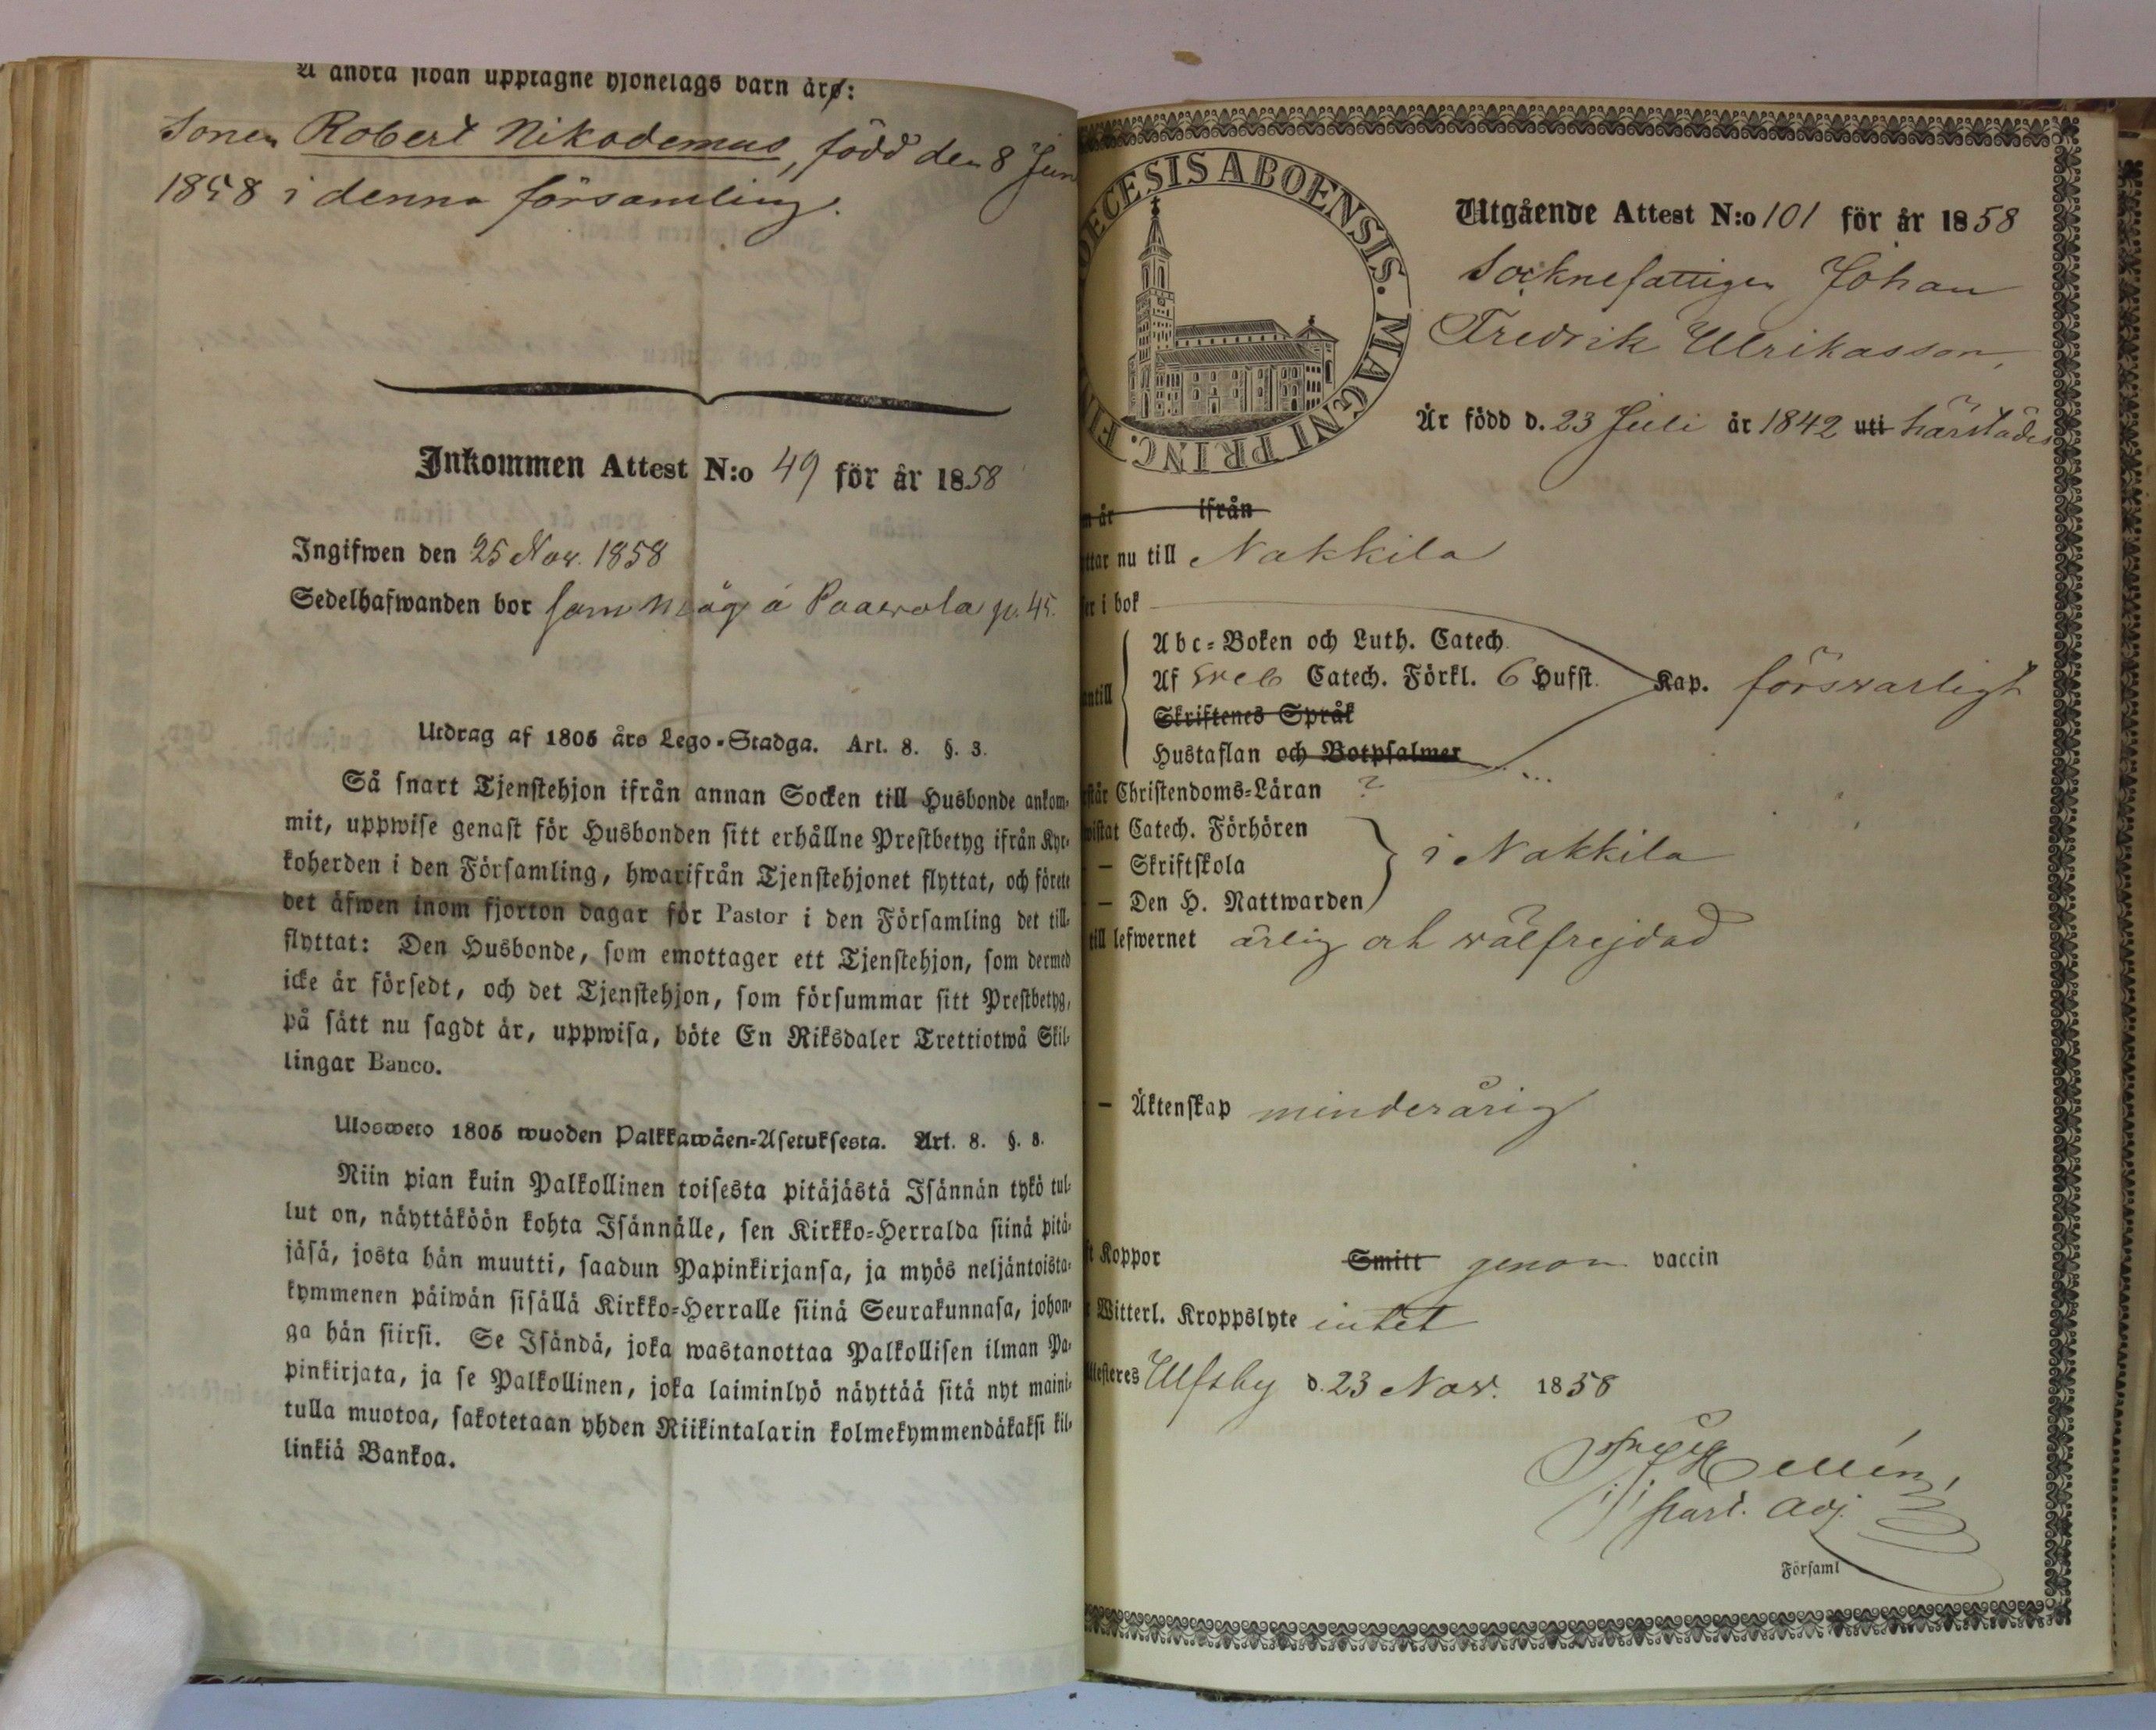 Å andra sidan upptagne hjonelags barn äro:
Sonen Robert Nikodemus, född den 8 Jun
1858 i denna församling.
Inkommen Attest N:o 49 för år 1858
Ingifwen den 25 Nov. 1858
Sedelhafwanden bor som måg å Paavola p. 45.
Utdrag af 1805 års Lego-Stadga. Art. 8. §. 3.
Så snart Tjenstehjon ifrån annan Socken till Husbonde ankom-
mit, uppwise genast för Husbonden sitt erhållne Prestbetyg ifrån Kyr-
koherden i den Församling, hwarifrån Tjenstehjonet flyttat, och förete
det äfwen inom fjorton dagar för Pastor i den Församling det till-
flyttat: Den Husbonde, som emottager ett Tjenstehjon, som dermed
icke är försedt, och det Tjenstehjon, som försummar sitt Prestbetyg,
på sätt nu sagdt är, uppwisa, böte En Riksdaler Trettiotwå Skil-
lingar Banco.
Ulosweto 1805 wuoden Palkkawäen-Asetuksesta. Art. 8. §. 8.
Niin pian kuin Palkollinen toisesta pitäjästä Isännän tykö tul-
lut on, näyttäköön kohta Isännälle, sen Kirkko-Herralda siinä pitä-
jäsä, josta hän muutti, saadun Papinkirjansa, ja myös neljäntoista-
kymmenen päiwän sisällä Kirkko-Herralle siinä Seurakunnasa, johon-
ga hän siirsi. Se Isändä, joka wastanottaa Palkollisen ilman Pa-
pinkirjata, ja se Palkollinen, joka laiminlyö näyttää sitä nyt maini-
tulla muotoa, sakotetaan yhden Riikintalarin kolmekymmendäkaksi kil-
linkiä Bankoa.
ECESIS ABOENSIS. MAGNI PRINC. FIN
Utgående Attest N:o 101 för år 1858
Socknefattigen Johan
Fredrik Ulrikasson,
Är född d. 23 Juli år 1842 uti härstädes
n år ifrån
ttar nu till Nakkila
er i bok
antill
Abc-Boken och Luth. Catech.
Af Sveb Catech. Förkl. 6 Hufst. Kap. försvarligt
Skriftenes Språk
Hustaflan och Botpsalmer
står Christendoms-Läran ?
wistat Catech. Förhören
— Skriftskola i Nakkila
— Den H. Nattwarden
till lefwernet ärlig och välfrejdad
— Äktenskap minderårig
t Koppor Smitt genom vaccin
Witterl. Kroppslyte intet
ttesteres Ulfsby d. 23 Nov. 1858
Hellén,
Past. Adj.
Församl